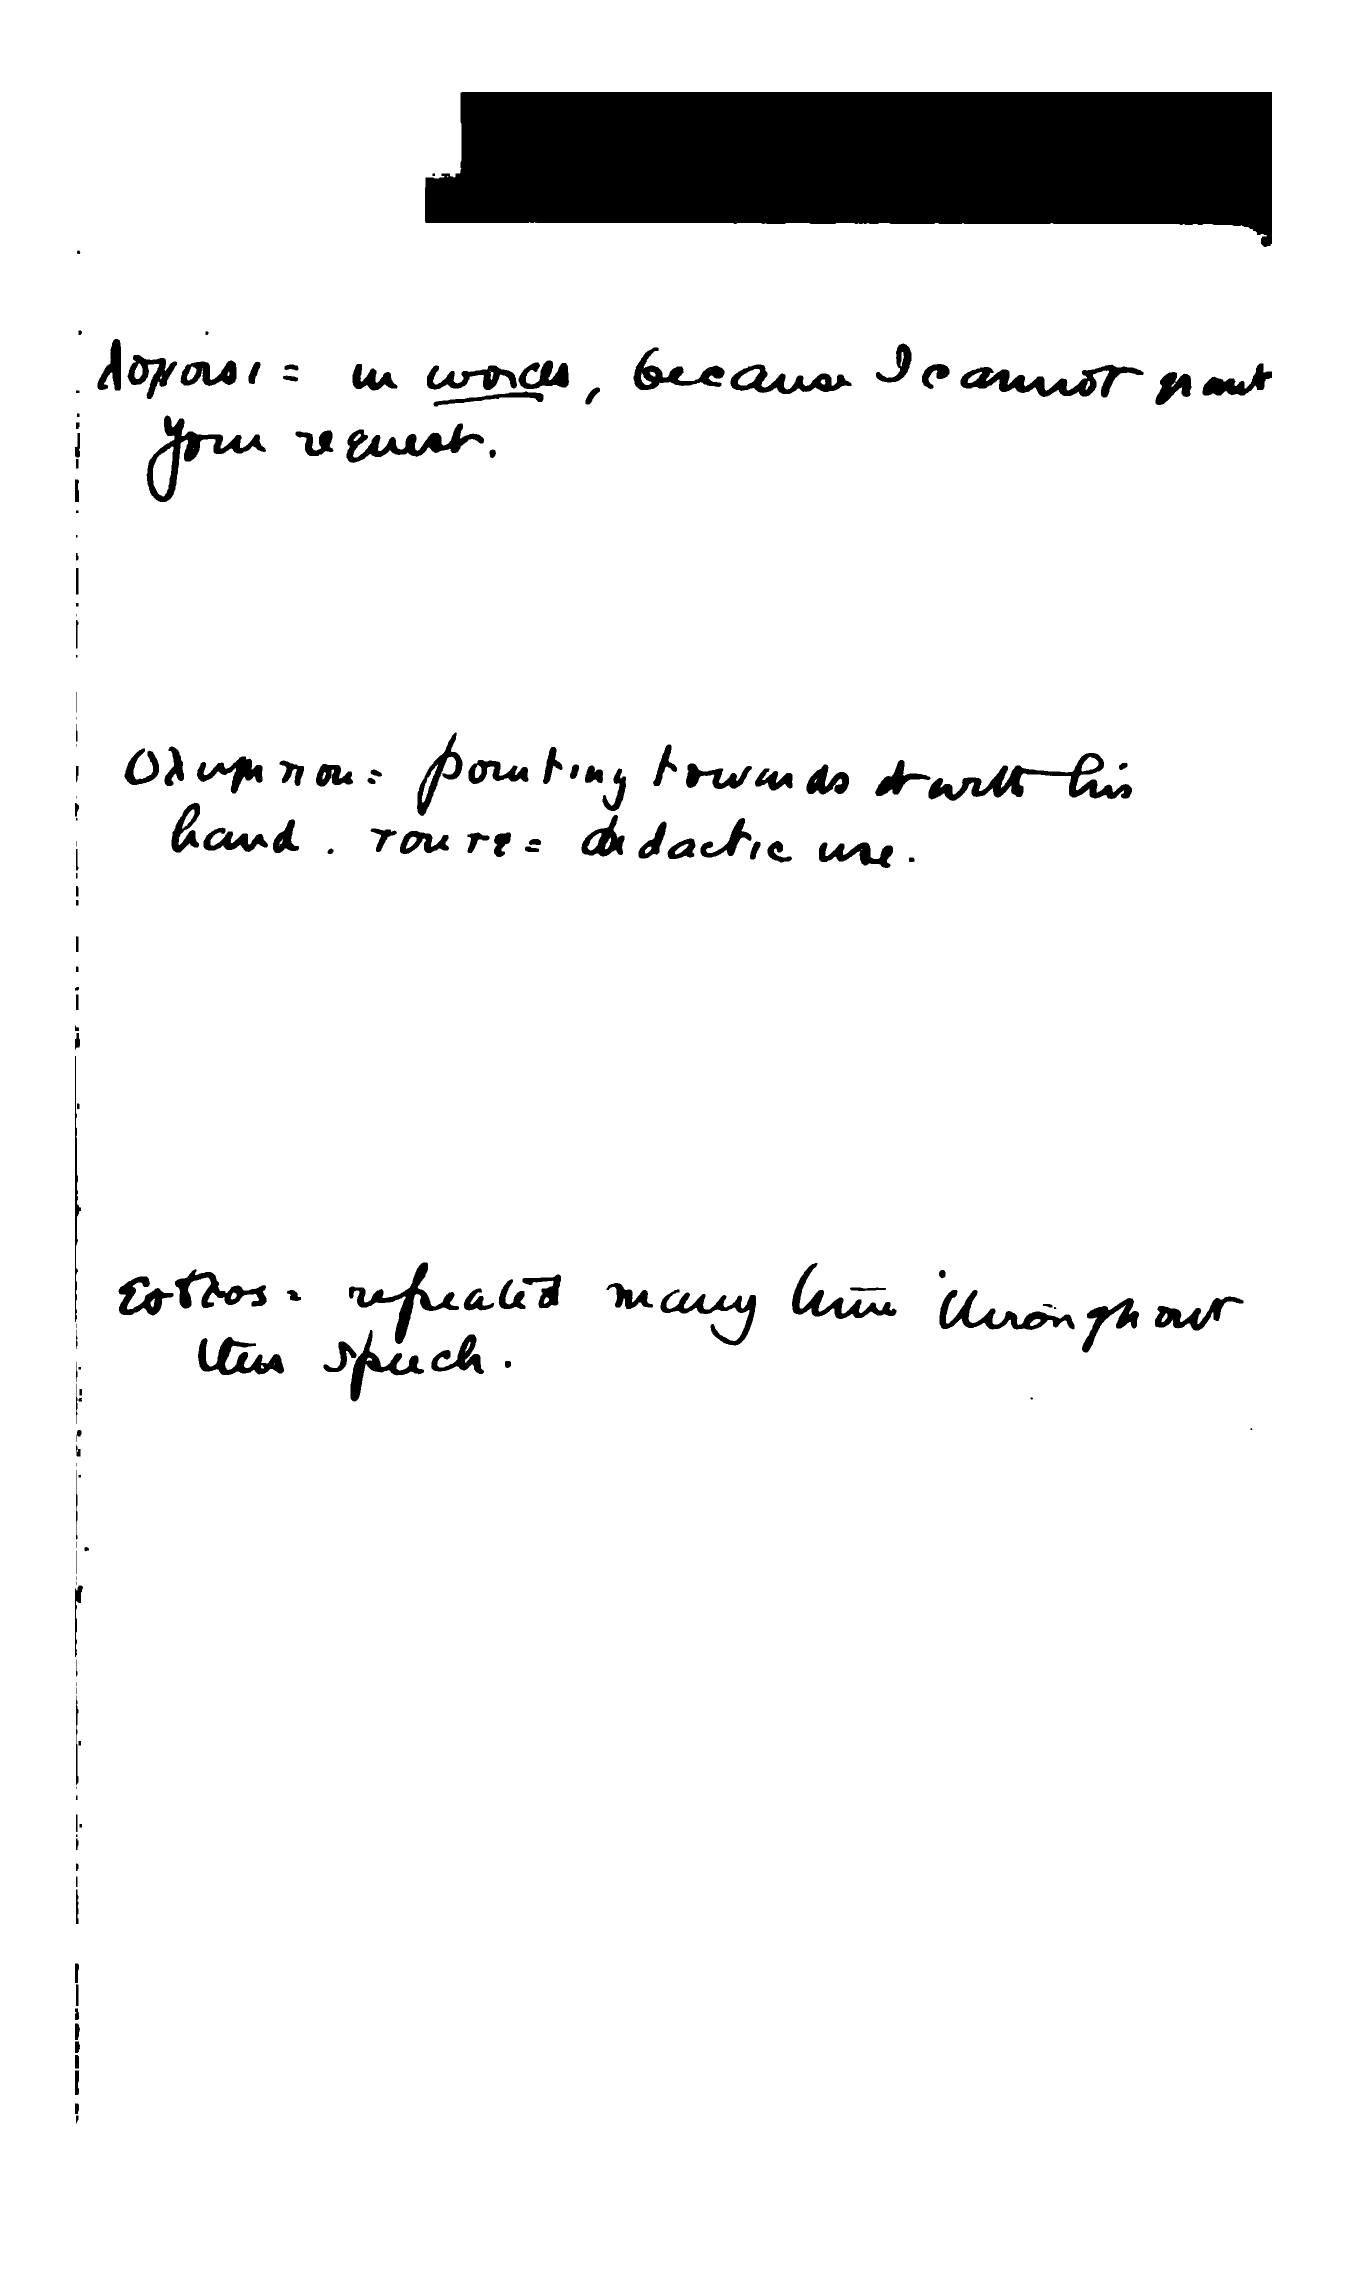 λογοισι = in words, because I cannot grant
your request.
Ολυμπου = pointing towards it with his
hand. τουτε = didactic use.
εσθλος = repeated many time throughout
this speech.